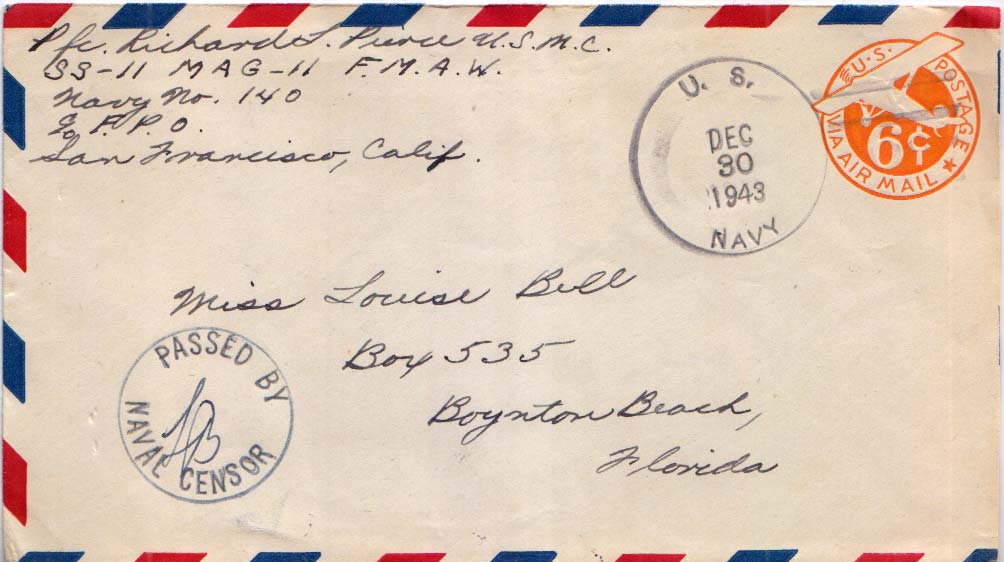 Pfc. Richard L. Pierce U.S.M.C.
SS-11 MAG-11 F.M.A.W.
Navy No. 140
℅ F.P.O.
San Francisco, Calif.
U. S.
DEC
30
1943
NAVY
U.S. POSTAGE
6¢
VIA AIR MAIL
Miss Louise Bell
Box 535
Boynton Beach,
Florida
PASSED BY
NAVAL CENSOR